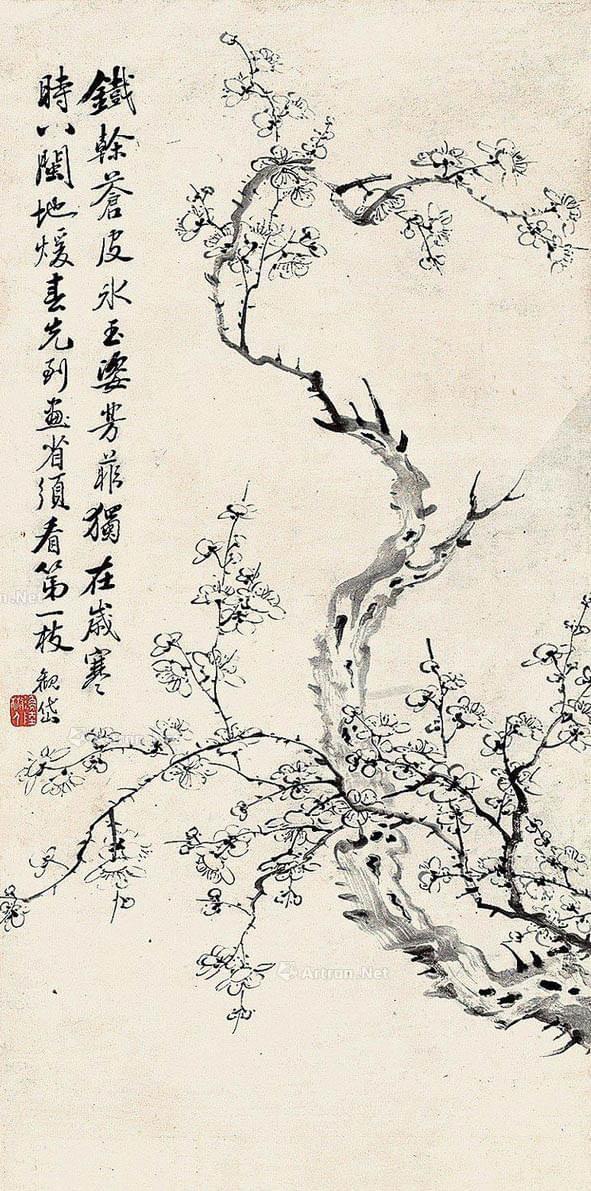 鐵榦蒼皮氷玉姿芳菲獨在歲寒
時八閩地煖春先到畫省須看第一枝
觀岱
Artron.Net